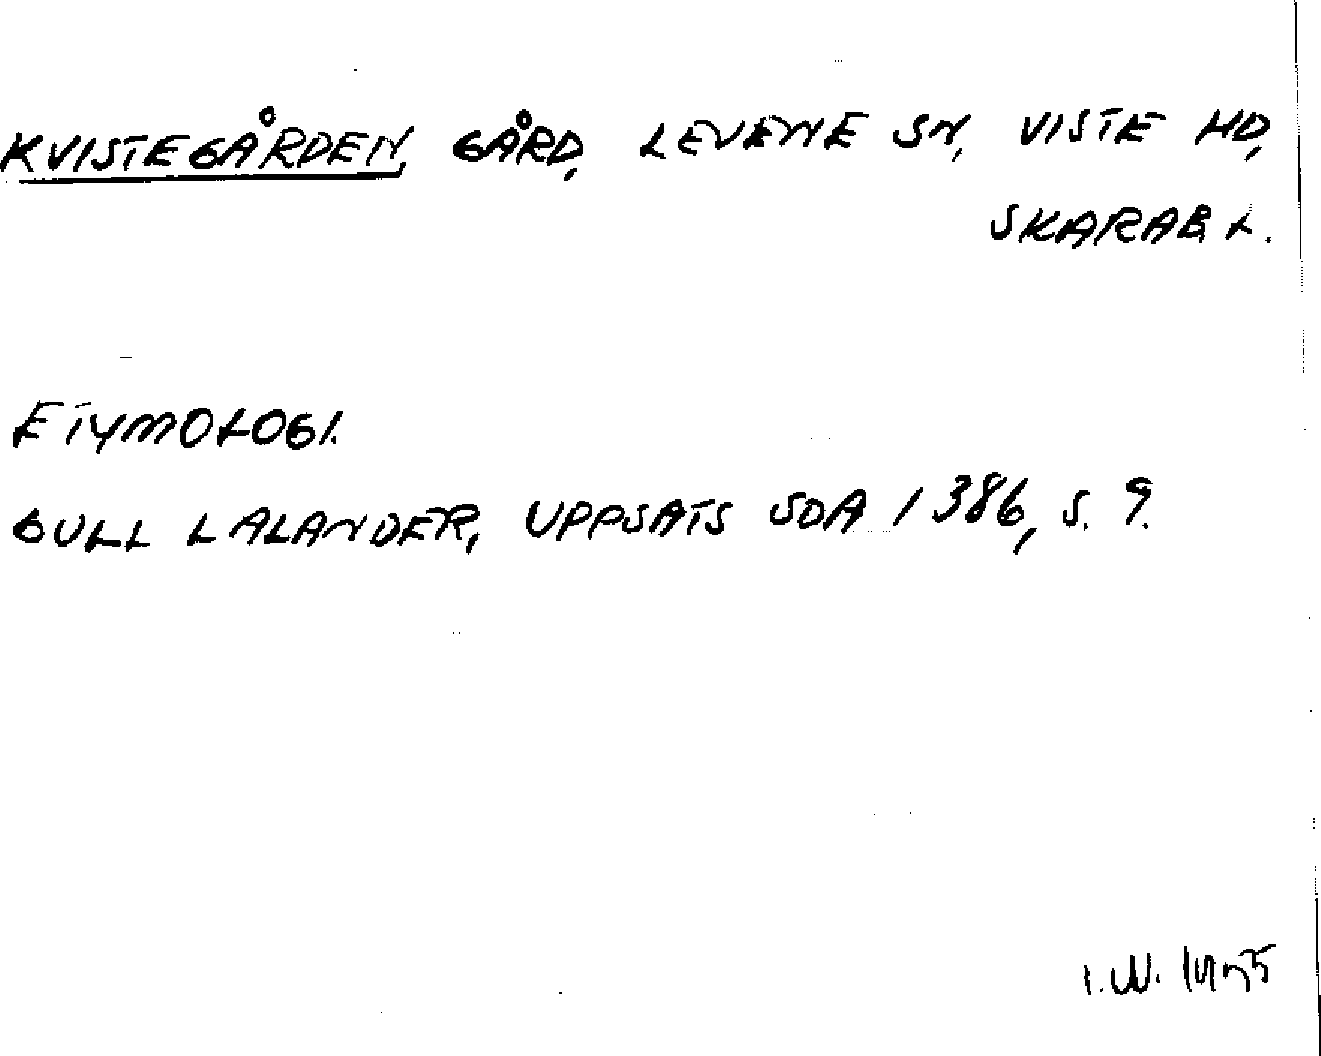 KVISTEGÅRDEN, GÅRD, LEVENE SN, VISTE HD,
SKARAB. L.
ETYMOLOGI.
GULL LALANDER, UPPSATS SOA 1386, S. 9.
I.W.